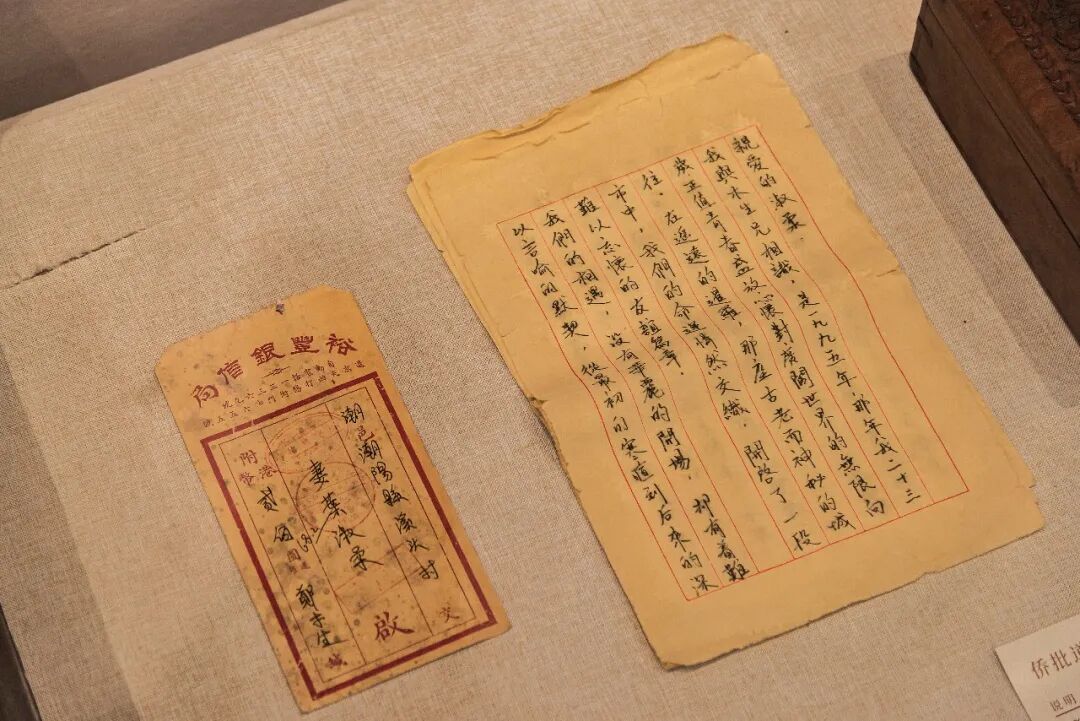 親愛的淑柔:
我與木生兄相識，是一九九五年，那年我二十三
歲正值青春盛放，心懷對廣闊世界的無限向
往，在遥遠的暹羅，那座古老而神秘的城
市中，我們的命運悄然交織，開啟了一段
難以忘懷的友誼篇章。
我們的相遇，沒有華麗的開場，却有着難
以言喻的默契，從最初的寒暄到后來的深
豐銀信局
潮邑潮陽縣 村 交
妻葉淑柔 啟
附港幣 貳佰
鄭木生 緘
侨批
说明